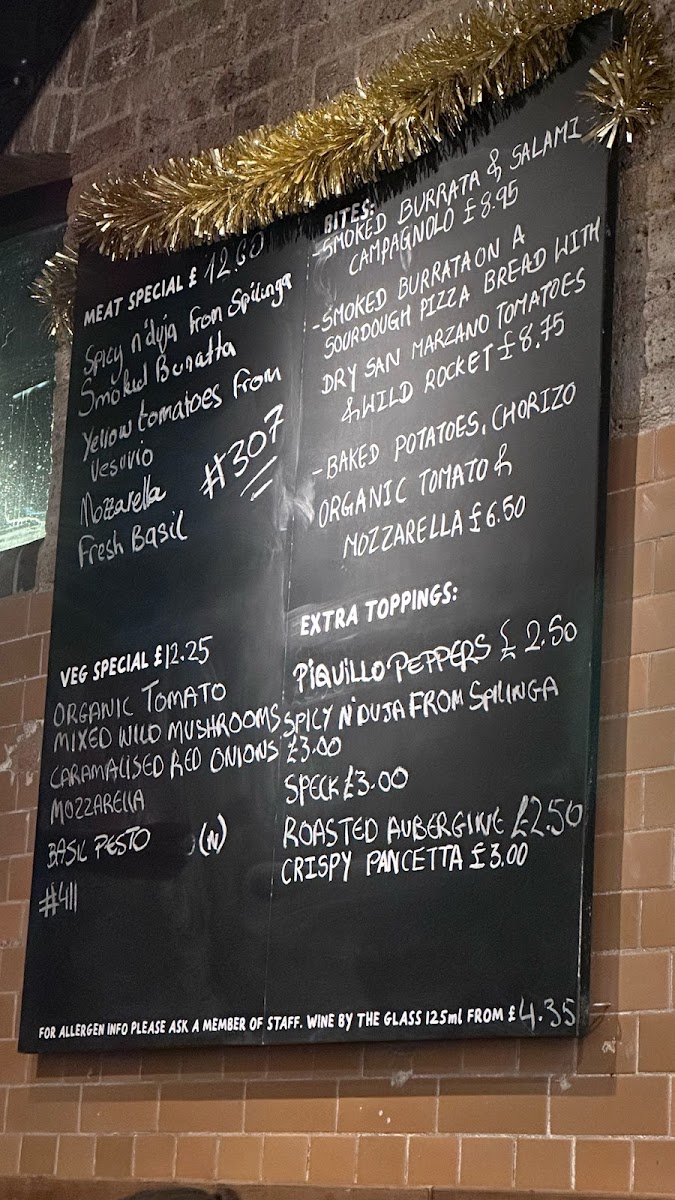 MEAT SPECIAL £ 12.60
Spicy n'duja from Spilinga
Smoked Buratta
Yellow tomatoes from
Vesuvio
Mozzarella
Fresh Basil
#307
VEG SPECIAL £12.25
ORGANIC TOMATO
MIXED WILD MUSHROOMS
CARAMALISED RED ONIONS
MOZZARELLA
BASIL PESTO (N)
#411
BITES:
-SMOKED BURRATA & SALAMI
CAMPAGNOLO £8.95
-SMOKED BURRATA ON A
SOURDOUGH PIZZA BREAD WITH
DRY SAN MARZANO TOMATOES
& WILD ROCKET £8.75
-BAKED POTATOES, CHORIZO
ORGANIC TOMATO &
MOZZARELLA £6.50
EXTRA TOPPINGS:
PIQUILLO PEPPERS £ 2.50
SPICY N'DUJA FROM SPILINGA
£3.00
SPECK £3.00
ROASTED AUBERGINE £2.50
CRISPY PANCETTA £3.00
FOR ALLERGEN INFO PLEASE ASK A MEMBER OF STAFF. WINE BY THE GLASS 125ml FROM £4.35